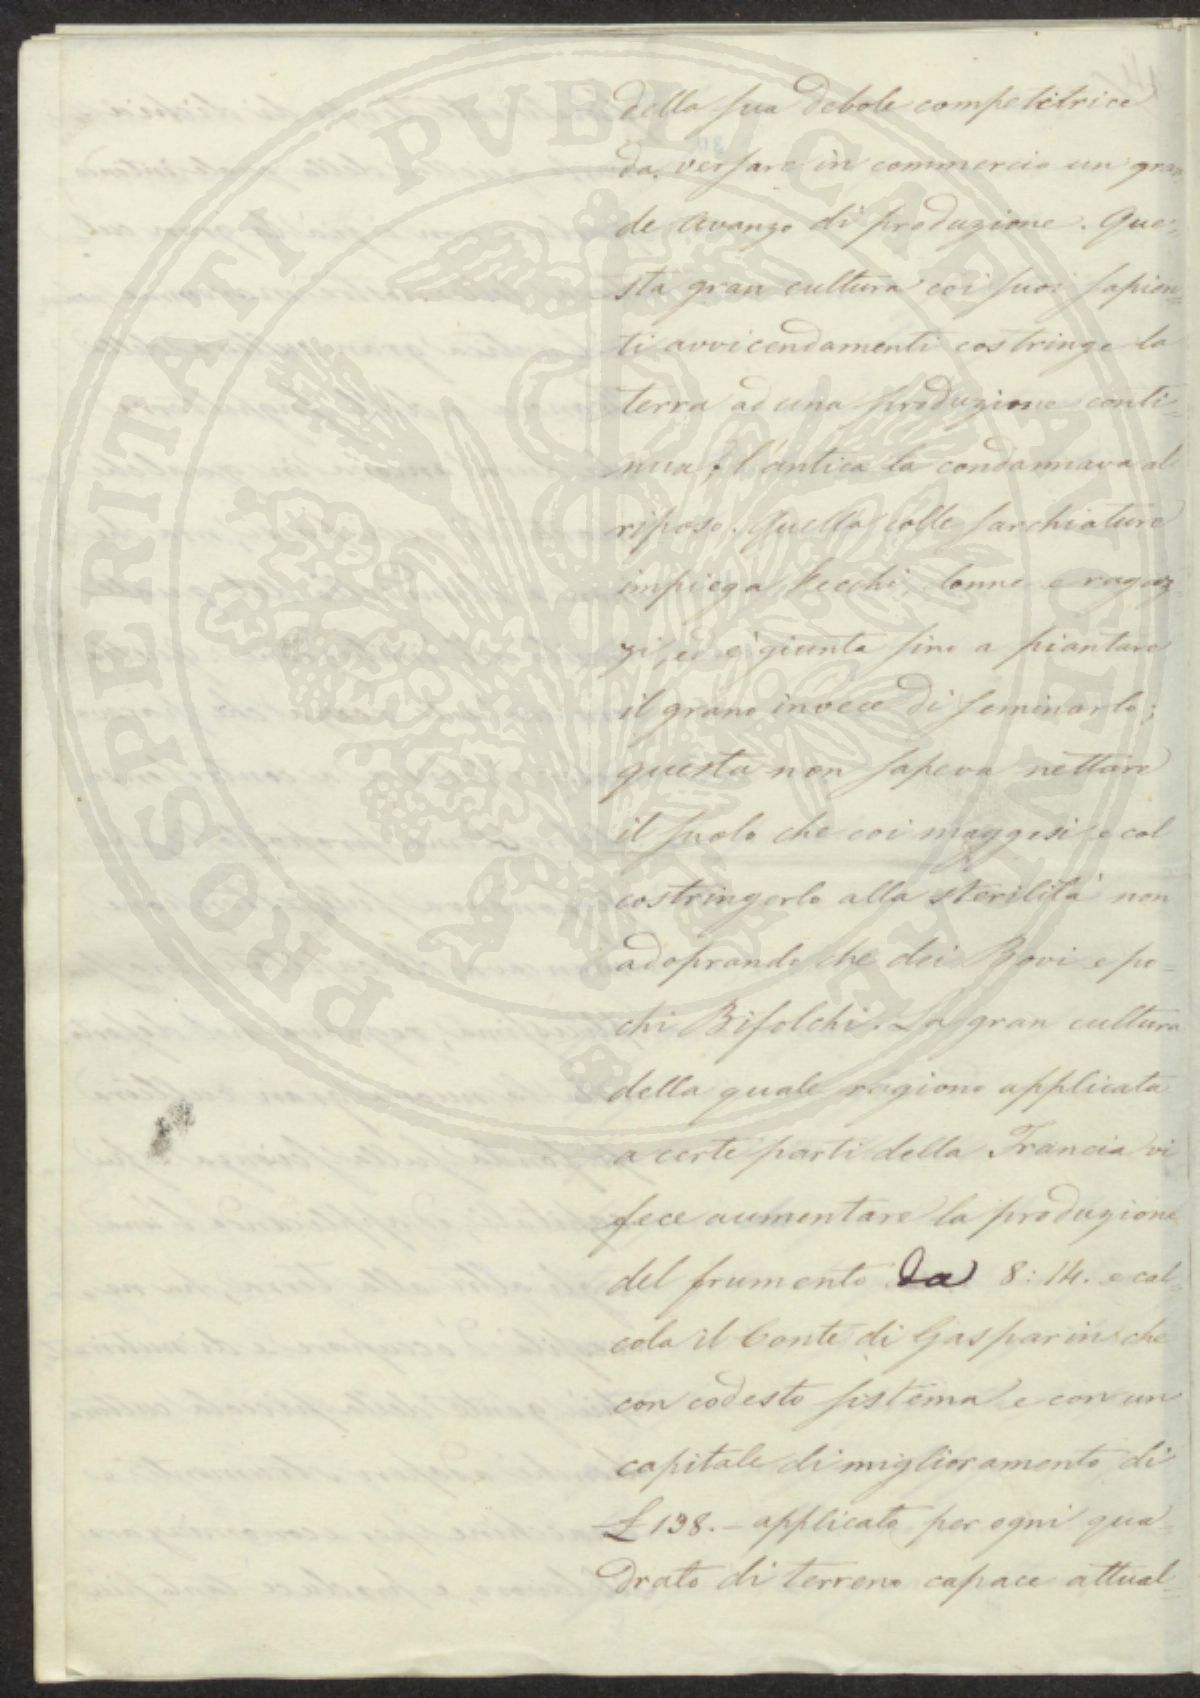 della sua debole competitrice
da versare in commercio un gran
de avanzo di produzione. Que-
sta gran cultura coi suoi sapien=
ti avvicendamenti costringe la
terra ad una produzione conti-
nua, l'antica la condannava al
riposo. Quella colle sarchiature
impiega Vecchi, donne e ragaz
zi, ed è giunta sino a piantare
il grano invece di seminarlo;
questa non sapeva nettare
il suolo che coi maggesi e col
costringerlo alla sterilità non
adoprando che dei Bovi e po=
chi Bifolchi. La gran cultura
della quale ragiono applicata
a certe parti della Francia vi
fece aumentare la produzione
del frumento da 8: 14. e cal=
cola il Conte di Gasparin che
con codesto sistema e con un
capitale di miglioramento di
£ 198.- applicato per ogni qua=
drato di terreno capace attual=
PROSPERITATI PVBLICAE AVGENDAE